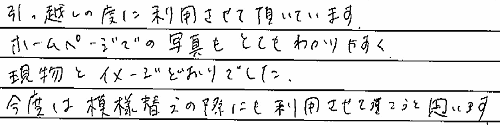 引っ越しの度に利用させて頂いています
ホームページでの写真もとてもわかりやすく
現物とイメージどおりでした.
今度は模様替えの際にも利用させて頂こうと思います